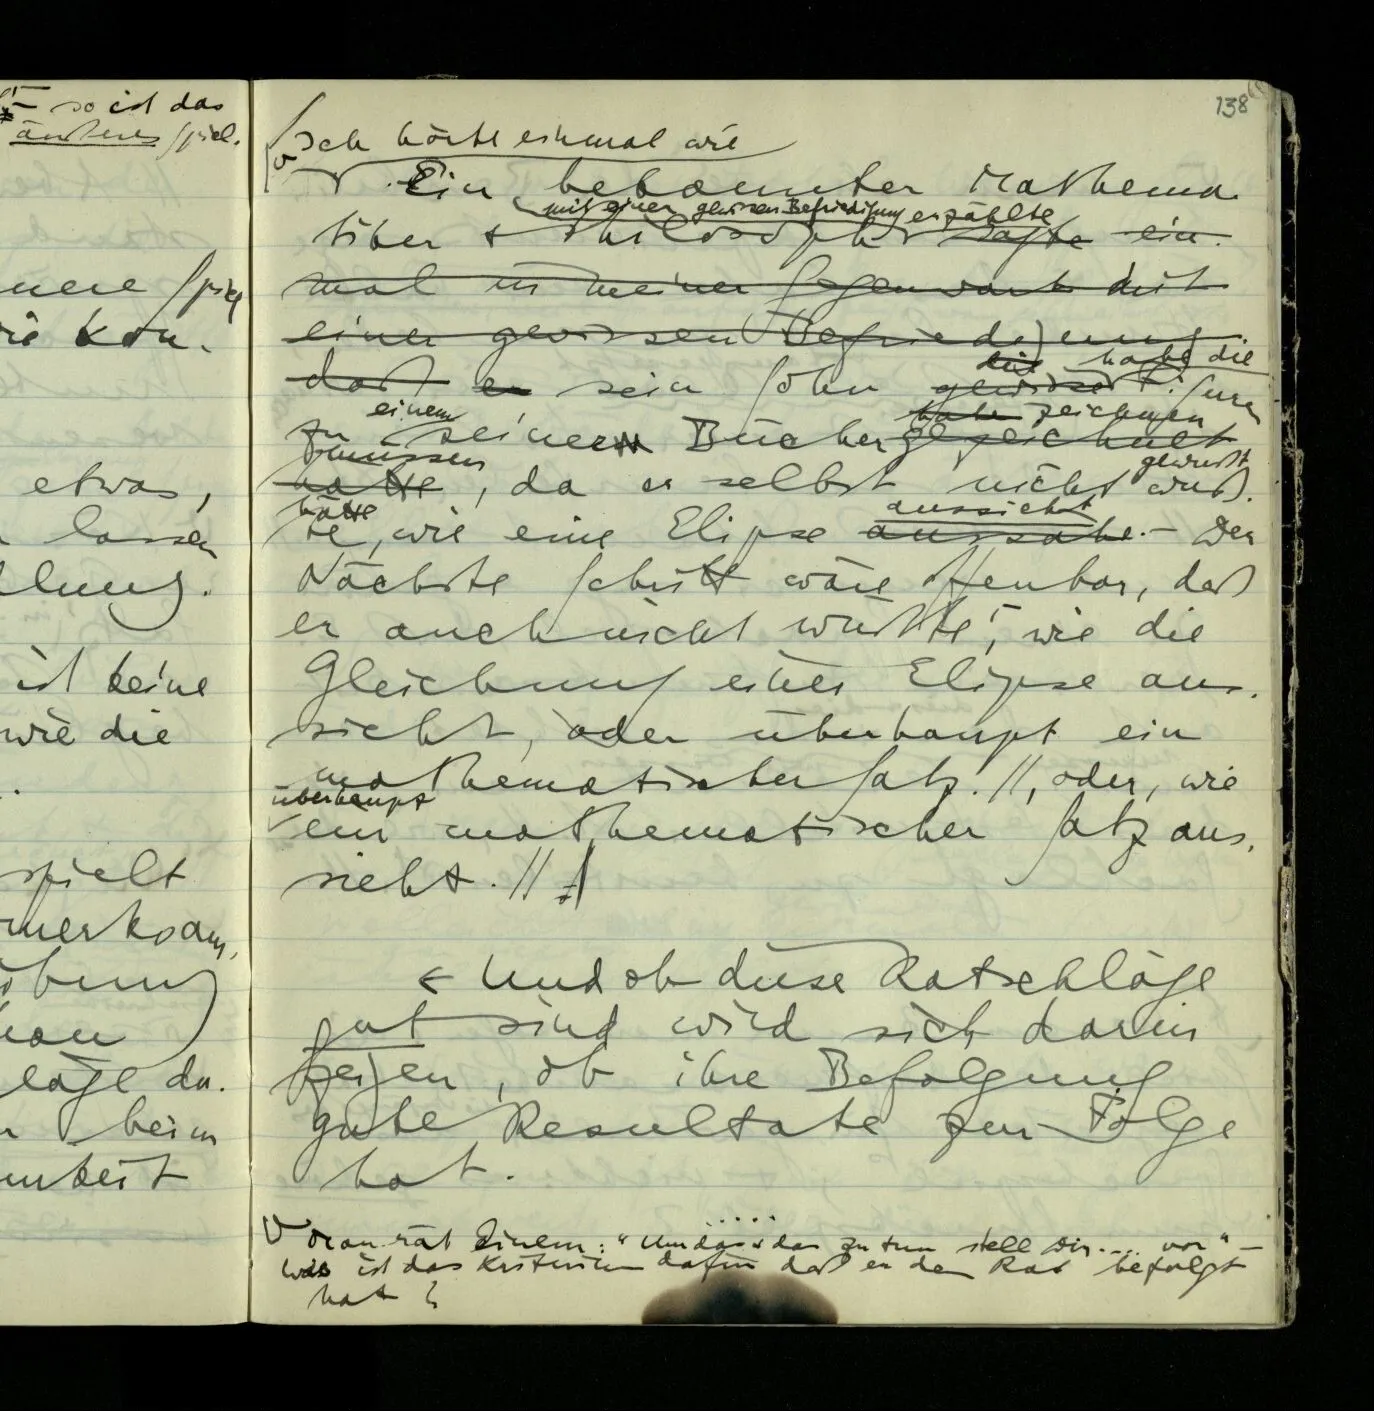 – so ist das
äussere Spiel.
nere Spiel
wie kön-
etwas,
lassen
lung.
ist keine
wie die
spielt
merksam,
übung
man
läge da-
beim
mkeit
138
Ich hörte einmal wie
Ein bekannter Mathema-
mit einer gewissen Befriedigung erzählte
tiker & Philosoph sagte ein-
mal in meiner Gegenwart mit
einer gewissen Befriedigung
habe die
daß er sein Sohn Figuren
einem habe zeichnen
zu seinem Bücher gezeichnet
müssen gewußt
hatte, da er selbst nicht wuß-
hätte aussieht
te, wie eine Elipse aussähe. – Der
Nächste Schritt wäre offenbar, daß
er auch nicht wüßte, wie die
Gleichung einer Elipse aus-
sieht, oder überhaupt ein
mathematischer Satz. //, oder, wie
überhaupt
ein mathematischer Satz aus-
sieht. //
Und ob diese Ratschläge
gut sind wird sich darin
zeigen, ob ihre Befolgung
gute Resultate zur Folge
hat.
Man rät Einem: "Um das zu tun stell Dir .... vor" –
Was ist das Kriterium dafür daß er den Rat befolgt
hat?